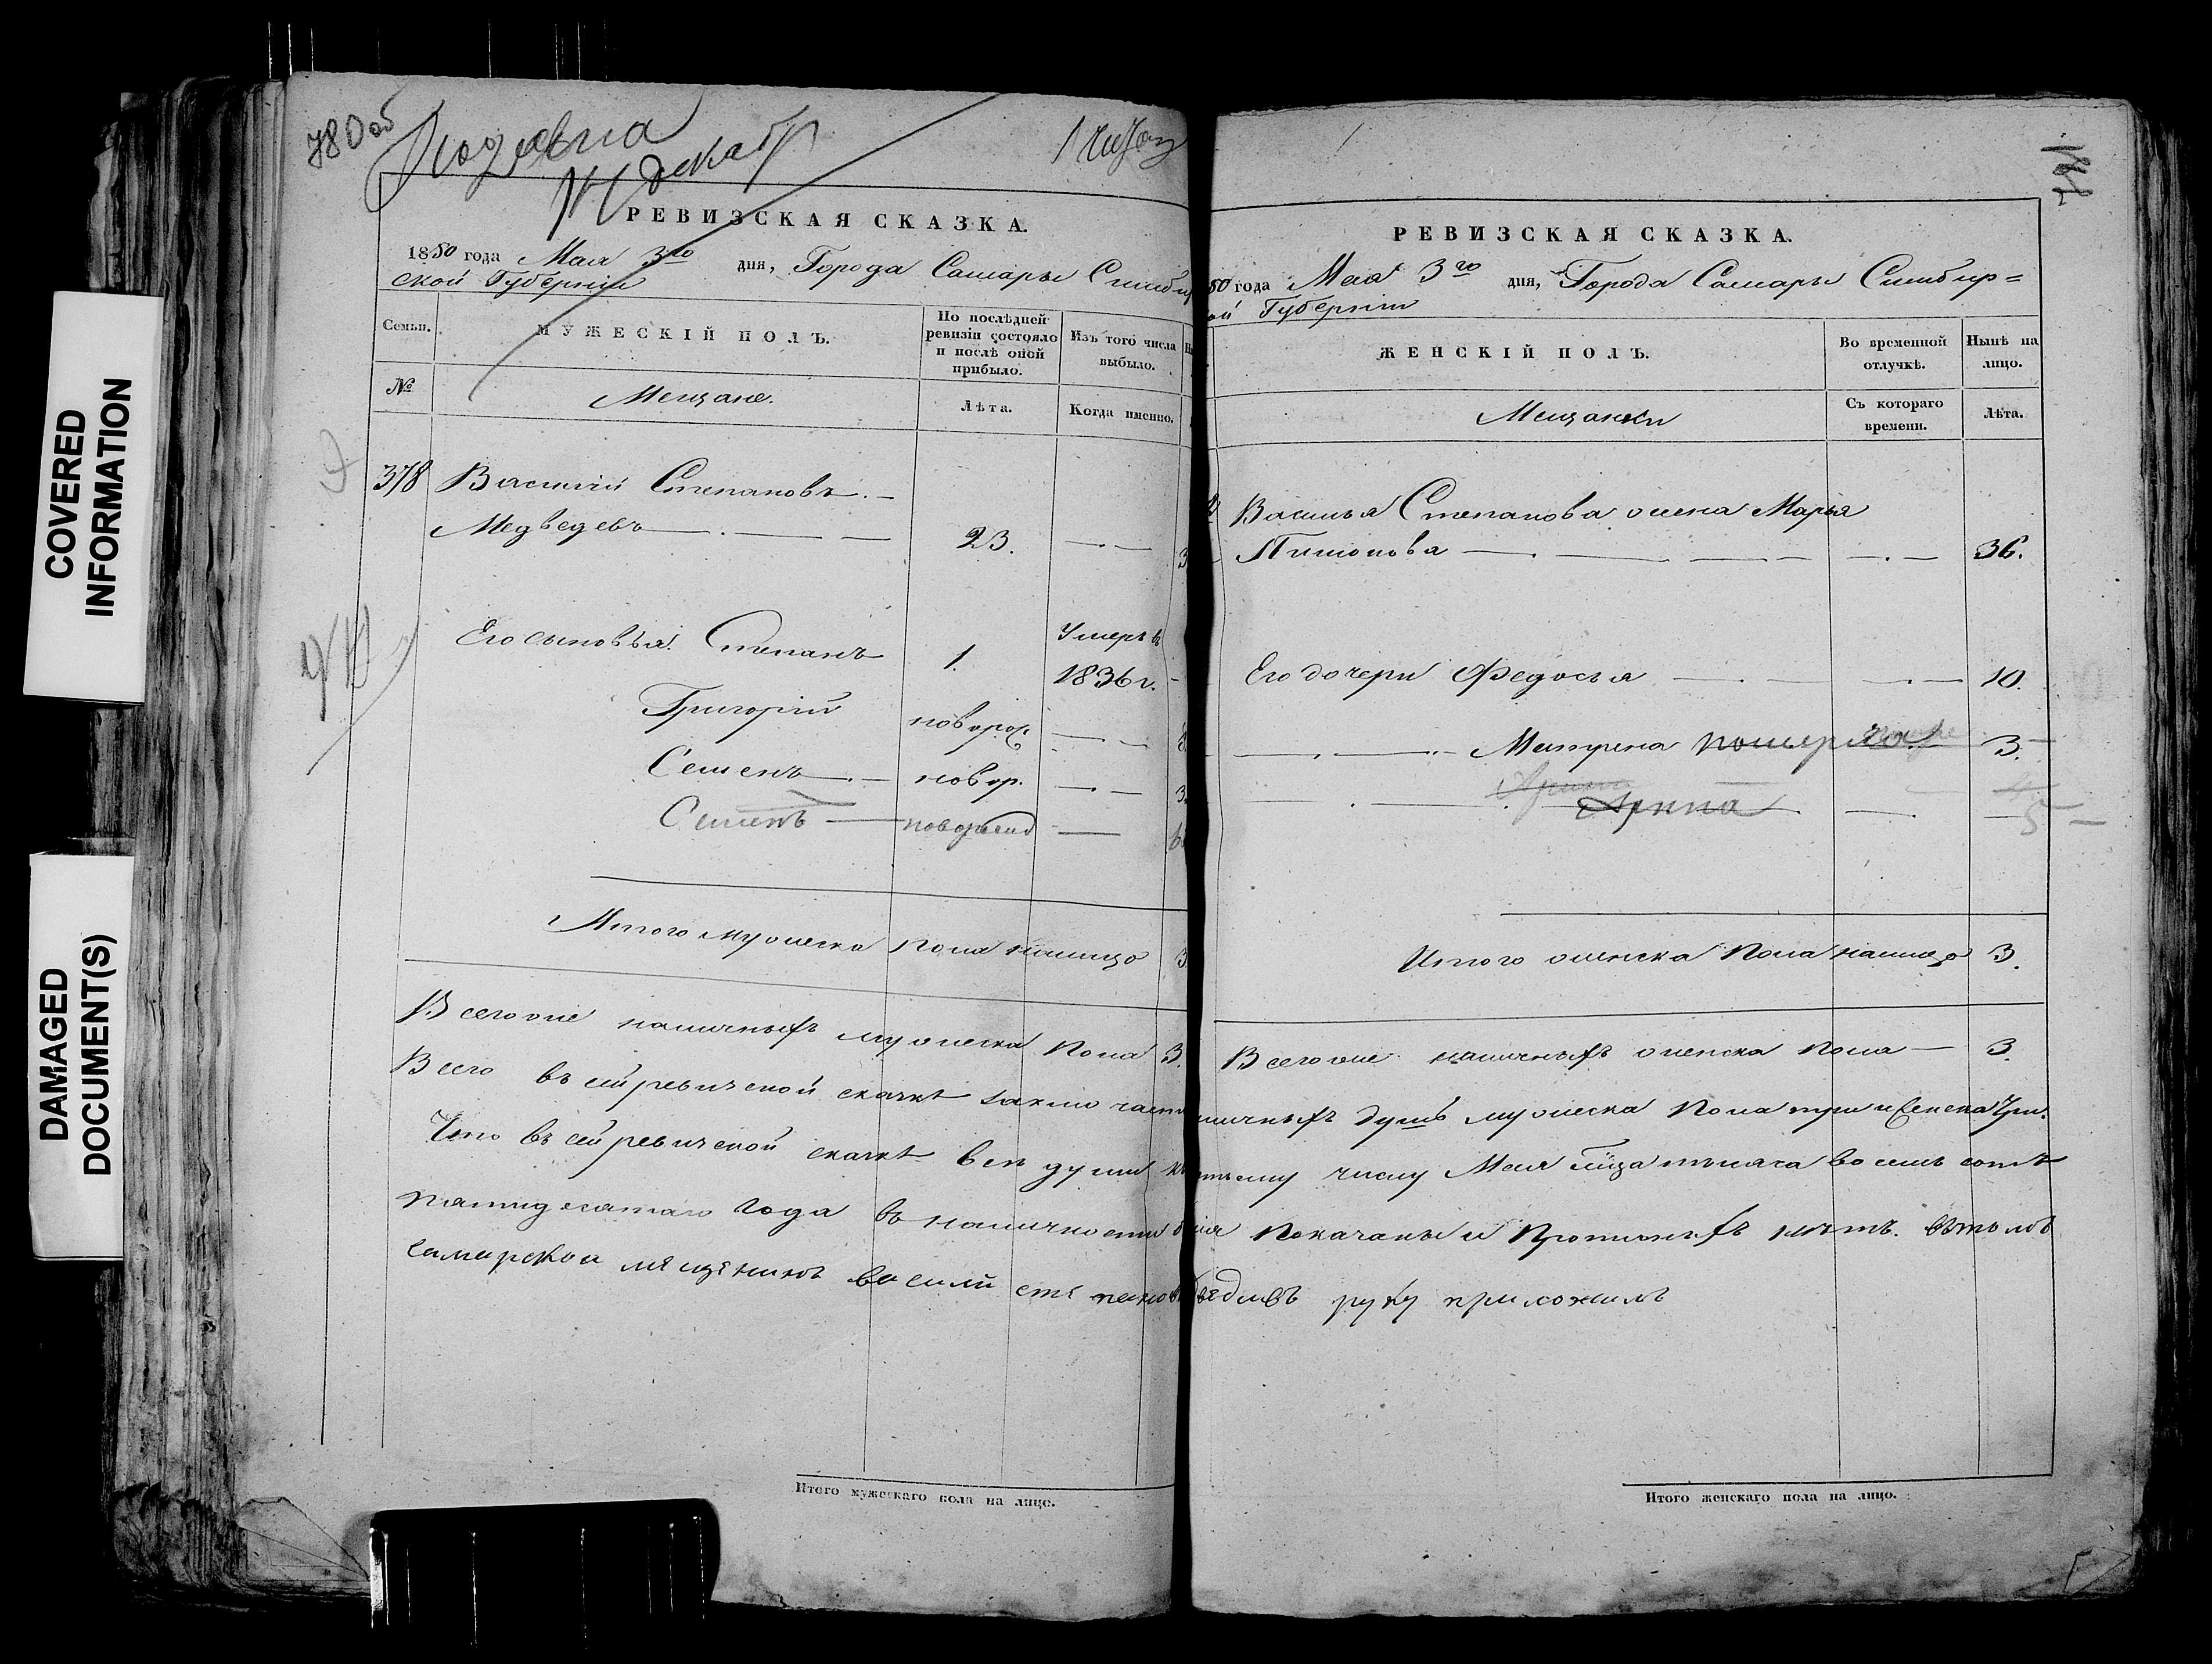 COVERED
INFORMATION
DAMAGED
DOCUMENT(S)
780об
РЕВИЗСКАЯ СКАЗКА.
1850 года Мая 3го дня, Города Самары Симбир
ской Губерніи
Семьи.
МУЖЕСКІЙ ПОЛЪ.
По послѣдней
ревизіи состояло
и послѣ оной
прибыло.
Изъ того числа
выбыло.
№
Мещане.
Лѣта.
Когда именно.
378 Василій Степановъ.
Медвѣдевъ 23.
Его сыновья: Степанъ 1. Умеръ въ
1836 г.
Григорій новорож
Семенъ новор.
Семенъ новорожд
Итого мужеска пола налицо 3
Всего же наличныхъ мужеска пола 3.
РЕВИЗСКАЯ СКАЗКА.
50 года Мая 3го дня, Города Самары Симбир=
ой Губерніи
ЖЕНСКІЙ ПОЛЪ.
Во временной
отлучкѣ.
Нынѣ на
лицо.
Мещанки
Съ котораго
времени.
Лѣта.
Василья Степанова жена Марья
36.
Его дочери Федосья 10.
Матрена померла 3.
Арина 5
Итого женска пола налицо 3.
Всего же наличныхъ женска пола 3.
Всего въ сей ревизской сказкѣ наличныхъ душъ мужеска пола три и женска три.
Что въ сей ревизской сказкѣ всѣ души къ третьему числу Мая тысяча восемь сотъ
пятидесятаго года въ наличности показаны и прописныхъ нѣтъ. въ томъ
самарской мещенинъ василй степановъ медведивъ руку приложилъ
Итого мужескаго пола на лицо.
Итого женскаго пола на лицо.